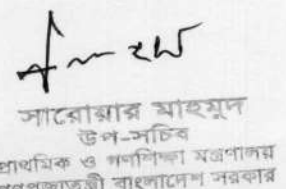 সারোয়ার মাহমুদ
উপ-সচিব
প্রাথমিক ও গণশিক্ষা মন্ত্রণালয়
গণপ্রজাতন্ত্রী বাংলাদেশ সরকার